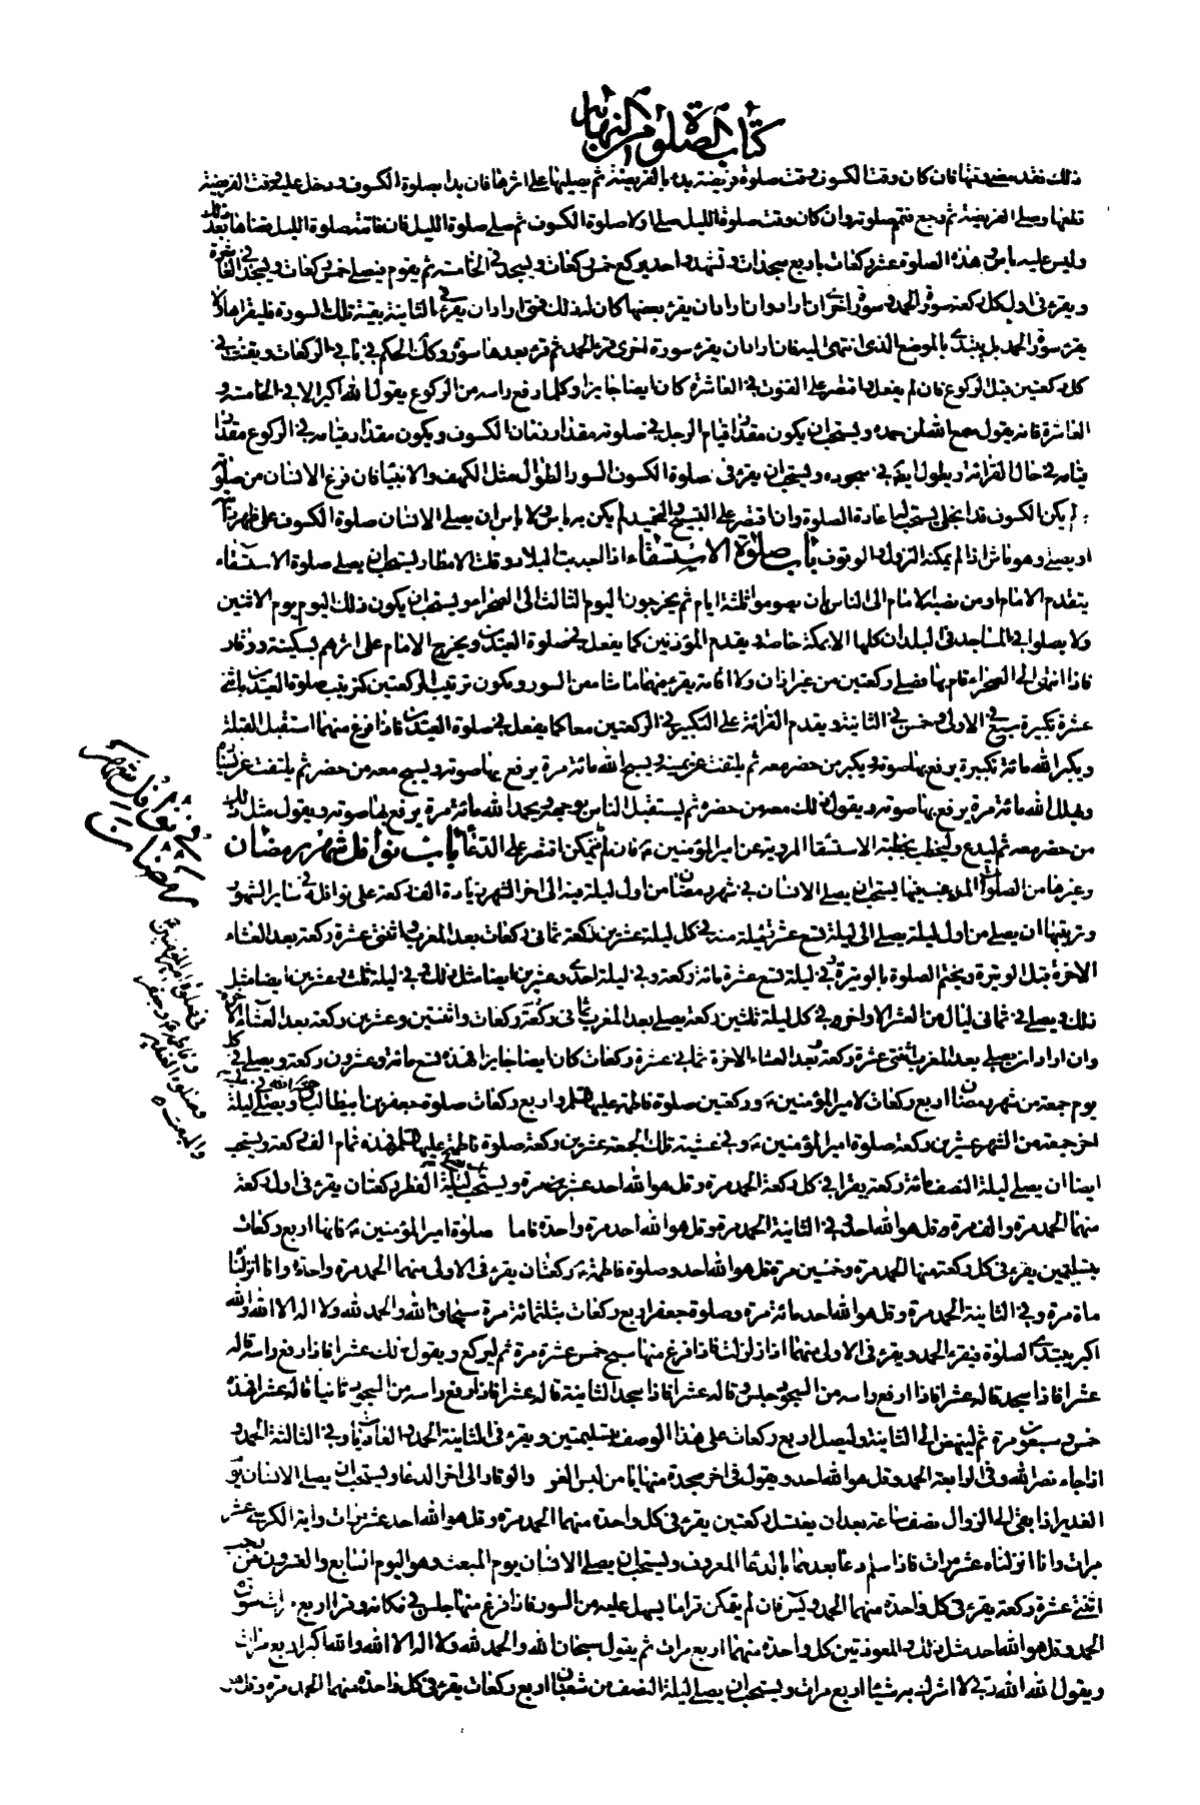 كتاب الصلوة من النهاية
ذلك فقد مضى وقتها فان كان وقت الكسوف وقت صلوة فريضة بدء بالفريضة ثم يصليها على اثرها فان بدا بصلوة الكسوف ودخل عليه وقت الفريضة
قطعها وصلى الفريضة ثم رجع فتمم صلوته وان كان وقت صلوة الليل صلى اولا صلوة الكسوف ثم صلى صلوة الليل فان فاتته صلوة الليل قضاها بعد ذلك
وليس عليه باس وهذه الصلوة عشر ركعات باربع سجدات وتشهد واحد يركع خمس ركعات ويسجد في الخامسة ثم يقوم فيصلى خمس ركعات ويسجد في العاشرة
ويقرء في اول كل ركعة سورة الحمد وسورة اخرى ان اراد وان اراد ان يقرء بعضها كان له ذلك فمتى اراد ان يقرء في الثانية بقية تلك السورة فليقراها ولا
يقرء سورة الحمد بل يبتدى بالموضع الذى انتهى اليه فان اراد ان يقرء سورة اخرى قرء الحمد ثم قرء بعدها سورة وكك الحكم في باقي الركعات ويقنت في
كل ركعتين قبل الركوع فان لم يفعل واقتصر على القنوت في العاشرة كان ايضا جايزا وكلما رفع راسه من الركوع يقول الله اكبر الا في الخامسة و
العاشرة فانه يقول سمع الله لمن حمده ويستحب ان يكون مقدار قيام الرجل في صلوته مقدار زمان الكسوف ويكون مقدار قيامه في الركوع مقدار
قيامه في حال القرائة ويطول ايضا في سجوده ويستحب ان يقرء في صلوة الكسوف السور الطوال مثل الكهف والانبيا فان فرغ الانسان من صلوته و
لم يكن الكسوف قد انجلى يستحب له اعادة الصلوة وان اقتصر على التسبيح والتحميد لم يكن به باس ولا باس ان يصلى الانسان صلوة الكسوف على ظهر دابته
او يصلى وهو ماش اذا لم يمكنه النزول والوقوف باب صلوة الاستسقاء اذا اجدبت البلاد وقلت الامطار يستحب ان يصلى صلوة الاستسقاء
يتقدم الامام او من نصبه الامام الى الناس بان يصوموا ثلثة ايام ثم يخرجون اليوم الثالث الى الصحراء ويستحب ان يكون ذلك اليوم يوم الاثنين
ولا يصلوا في المساجد في البلدان كلها الا بمكة خاصة ويقدم المؤذنين كما يفعل في صلوة العيدين ويخرج الامام على اثرهم بسكينة ووقار
فاذا انتهى الى الصحراء قام بها فصلى ركعتين من غير اذان ولا اقامة يقرء فيهما ما شاء من السور ويكون ترتيب الركعتين كترتيب صلوة العيدين باثنى
عشرة تكبيرة سبع في الاولى وخمس في الثانية ويقدم القرائة على التكبير في الركعتين معا كما يفعل في صلوة العيدين فاذا فرغ منهما استقبل القبلة
ويكبر الله مائة تكبيرة يرفع بها صوته ويكبر من حضر معه ثم يلتفت عن يمينه ويسبح الله مائة مرة يرفع بها صوته ويسبح معه من حضر ثم يلتفت عن يساره
ويهلل الله مائة مرة يرفع بها صوته ويقول ذلك معه من حضره ثم يستقبل الناس بوجهه ويحمد الله مائة مرة يرفع بها صوته ويقول مثل ذلك
من حضر معه ثم ليدع وليخطب بخطبة الاستسقا المروية عن امير المؤمنين ع فان لم يتمكن اقتصر على الدعا باب نوافل شهر رمضان
وغيرها من الصلوات المرغب فيها يستحب ان يصلى الانسان في شهر رمضان من اول ليلة منه الى اخر الشهر زيادة الف ركعة على نوافله في ساير الشهور
وترتيبها ان يصلى من اول ليلة يصلى الى ليلة تسع عشرة ليلة منه في كل ليلة عشرين ركعة ثمانى ركعات بعد المغرب واثنتى عشرة ركعة بعد العشاء
الاخرة قبل الوتيرة ويختم الصلوة بالوتيرة وفي ليلة تسع عشرة مائة ركعة وفي ليلة احدى وعشرين ايضا مثل ذلك وفي ليلة ثلث وعشرين ايضا مثل
ذلك ويصلى في ثمانى ليال من العشر الاواخر في كل ليلة ثلثين ركعة يصلى بعد المغرب ثمانى ركعات واثنتين وعشرين ركعة بعد العشاء الاخرة
وان اراد ان يصلى بعد المغرب اثنتى عشرة ركعة وبعد العشاء الاخرة ثمانى عشرة ركعات كان ايضا جايزا فهذه تسع مائة وعشرون ركعة ويصلى في كل
يوم جمعة من شهر رمضان اربع ركعات لامير المؤمنين ع وركعتين صلوة فاطمة عليها السلم واربع ركعات صلوة جعفر بن ابيطالب رحمة الله عليه ويصلى ليلة
اخر جمعة من الشهر عشرين ركعة صلوة امير المؤمنين ع وفي عشية تلك الجمعة عشرين ركعة صلوة فاطمة عليها السلم فهذه تمام الف ركعة ويستحب
ايضا ان يصلى ليلة النصف مائة ركعة يقرا في كل ركعة الحمد مرة وقل هو الله احد عشر مرة ويستحب ان يصلى ليلة الفطر ركعتان يقرء في اول ركعة
منهما الحمد مرة والف مرة قل هو الله احد وفي الثانية الحمد مرة وقل هو الله احد مرة واحدة فاما صلوة امير المؤمنين ع فانها اربع ركعات
بتسليمتين يقرء في كل ركعة منها الحمد مرة وخمسين مرة قل هو الله احد وصلوة فاطمة ع ركعتان يقرء في الاولى منهما الحمد مرة واحدة وانا انزلناه
ماة مرة وفي الثانية الحمد مرة وقل هو الله احد مائة مرة وصلوة جعفر اربع ركعات بثلثمائة مرة سبحان الله والحمد لله ولا اله الا الله والله
اكبر يبتدى الصلوة فيقرء الحمد ويقرء في الاولى منهما اذا زلزلت فاذا فرغ منها سبح خمس عشرة مرة ثم ليركع ويقول ذلك عشرا فاذا رفع راسه قاله
عشرا فاذا سجد قاله عشرا فاذا رفع راسه من السجود وجلس قاله عشرا فاذا سجد الثانية قاله عشرا فاذا رفع راسه من السجود ثانيا قاله عشرا فهذه
خمس وسبعون مرة ثم لينهض الى الثانية وليصل اربع ركعات على هذا الوصف بتسليمتين ويقرء في الثانية الحمد والعاديات وفي الثالثة الحمد و
اذا جاء نصر الله وفي الرابعة الحمد وقل هو الله احد ويقول في اخر سجدة منها يا من لبس العز والوقار الى اخر الدعا ويستحب ان يصلى الانسان يوم
الغدير اذا بقى الى الزوال نصف ساعة بعد ان يغتسل ركعتين يقرء في كل واحدة منهما الحمد مرة وقل هو الله احد عشر مرات واية الكرسى عشر
مرات وانا انزلناه عشر مرات فاذا سلم دعا بعدهما بالدعا المعروف ويستحب ان يصلى الانسان يوم المبعث وهو اليوم السابع والعشرون من رجب
اثنتى عشرة ركعة يقرء في كل واحدة منهما الحمد ويس فان لم يتمكن قرا ما يسهل عليه من السور فاذا فرغ منها جلس في مكانه وقرا اربع مرات سورة
الحمد وقل هو الله احد مثل ذلك والمعوذتين كل واحدة منهما اربع مرات ثم يقول سبحان الله والحمد لله ولا اله الا الله والله اكبر اربع مرات
ويقول الله الله ربى لا اشرك به شيئا اربع مرات ويستحب ان يصلى ليلة النصف من شعبان اربع ركعات يقرء في كل واحدة منهما الحمد مرة وقل هو
في نوافل شهر
رمضان
في صلوة امير المؤمنين
وفاطمة ع وجعفر
وصلوة الغدير
والمبعث